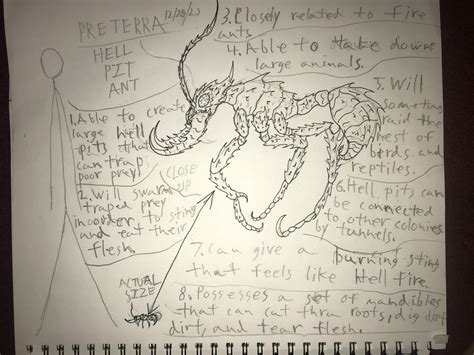 PRETERRA 12/29/23
HELL
PIT
ANT
1. Able to create
large hell
pits that
can trap
poor prey!
2. Will swarm
traped prey
inorder to sting
and eat their
flesh.
CLOSE
UP
ACTUAL
SIZE
3. Closely related to fire
ants
4. Able to take downe
large animals.
5. Will
sometimes
raid the
nest of
birds and
reptiles.
6. Hell pits can
be connected
to other colonies
by tunnels.
7. Can give a burning sting
that feels like Hell fire
8. Possesses a set of mandibles
that can cut thru roots, dig deep
dirt, and tear flesh.